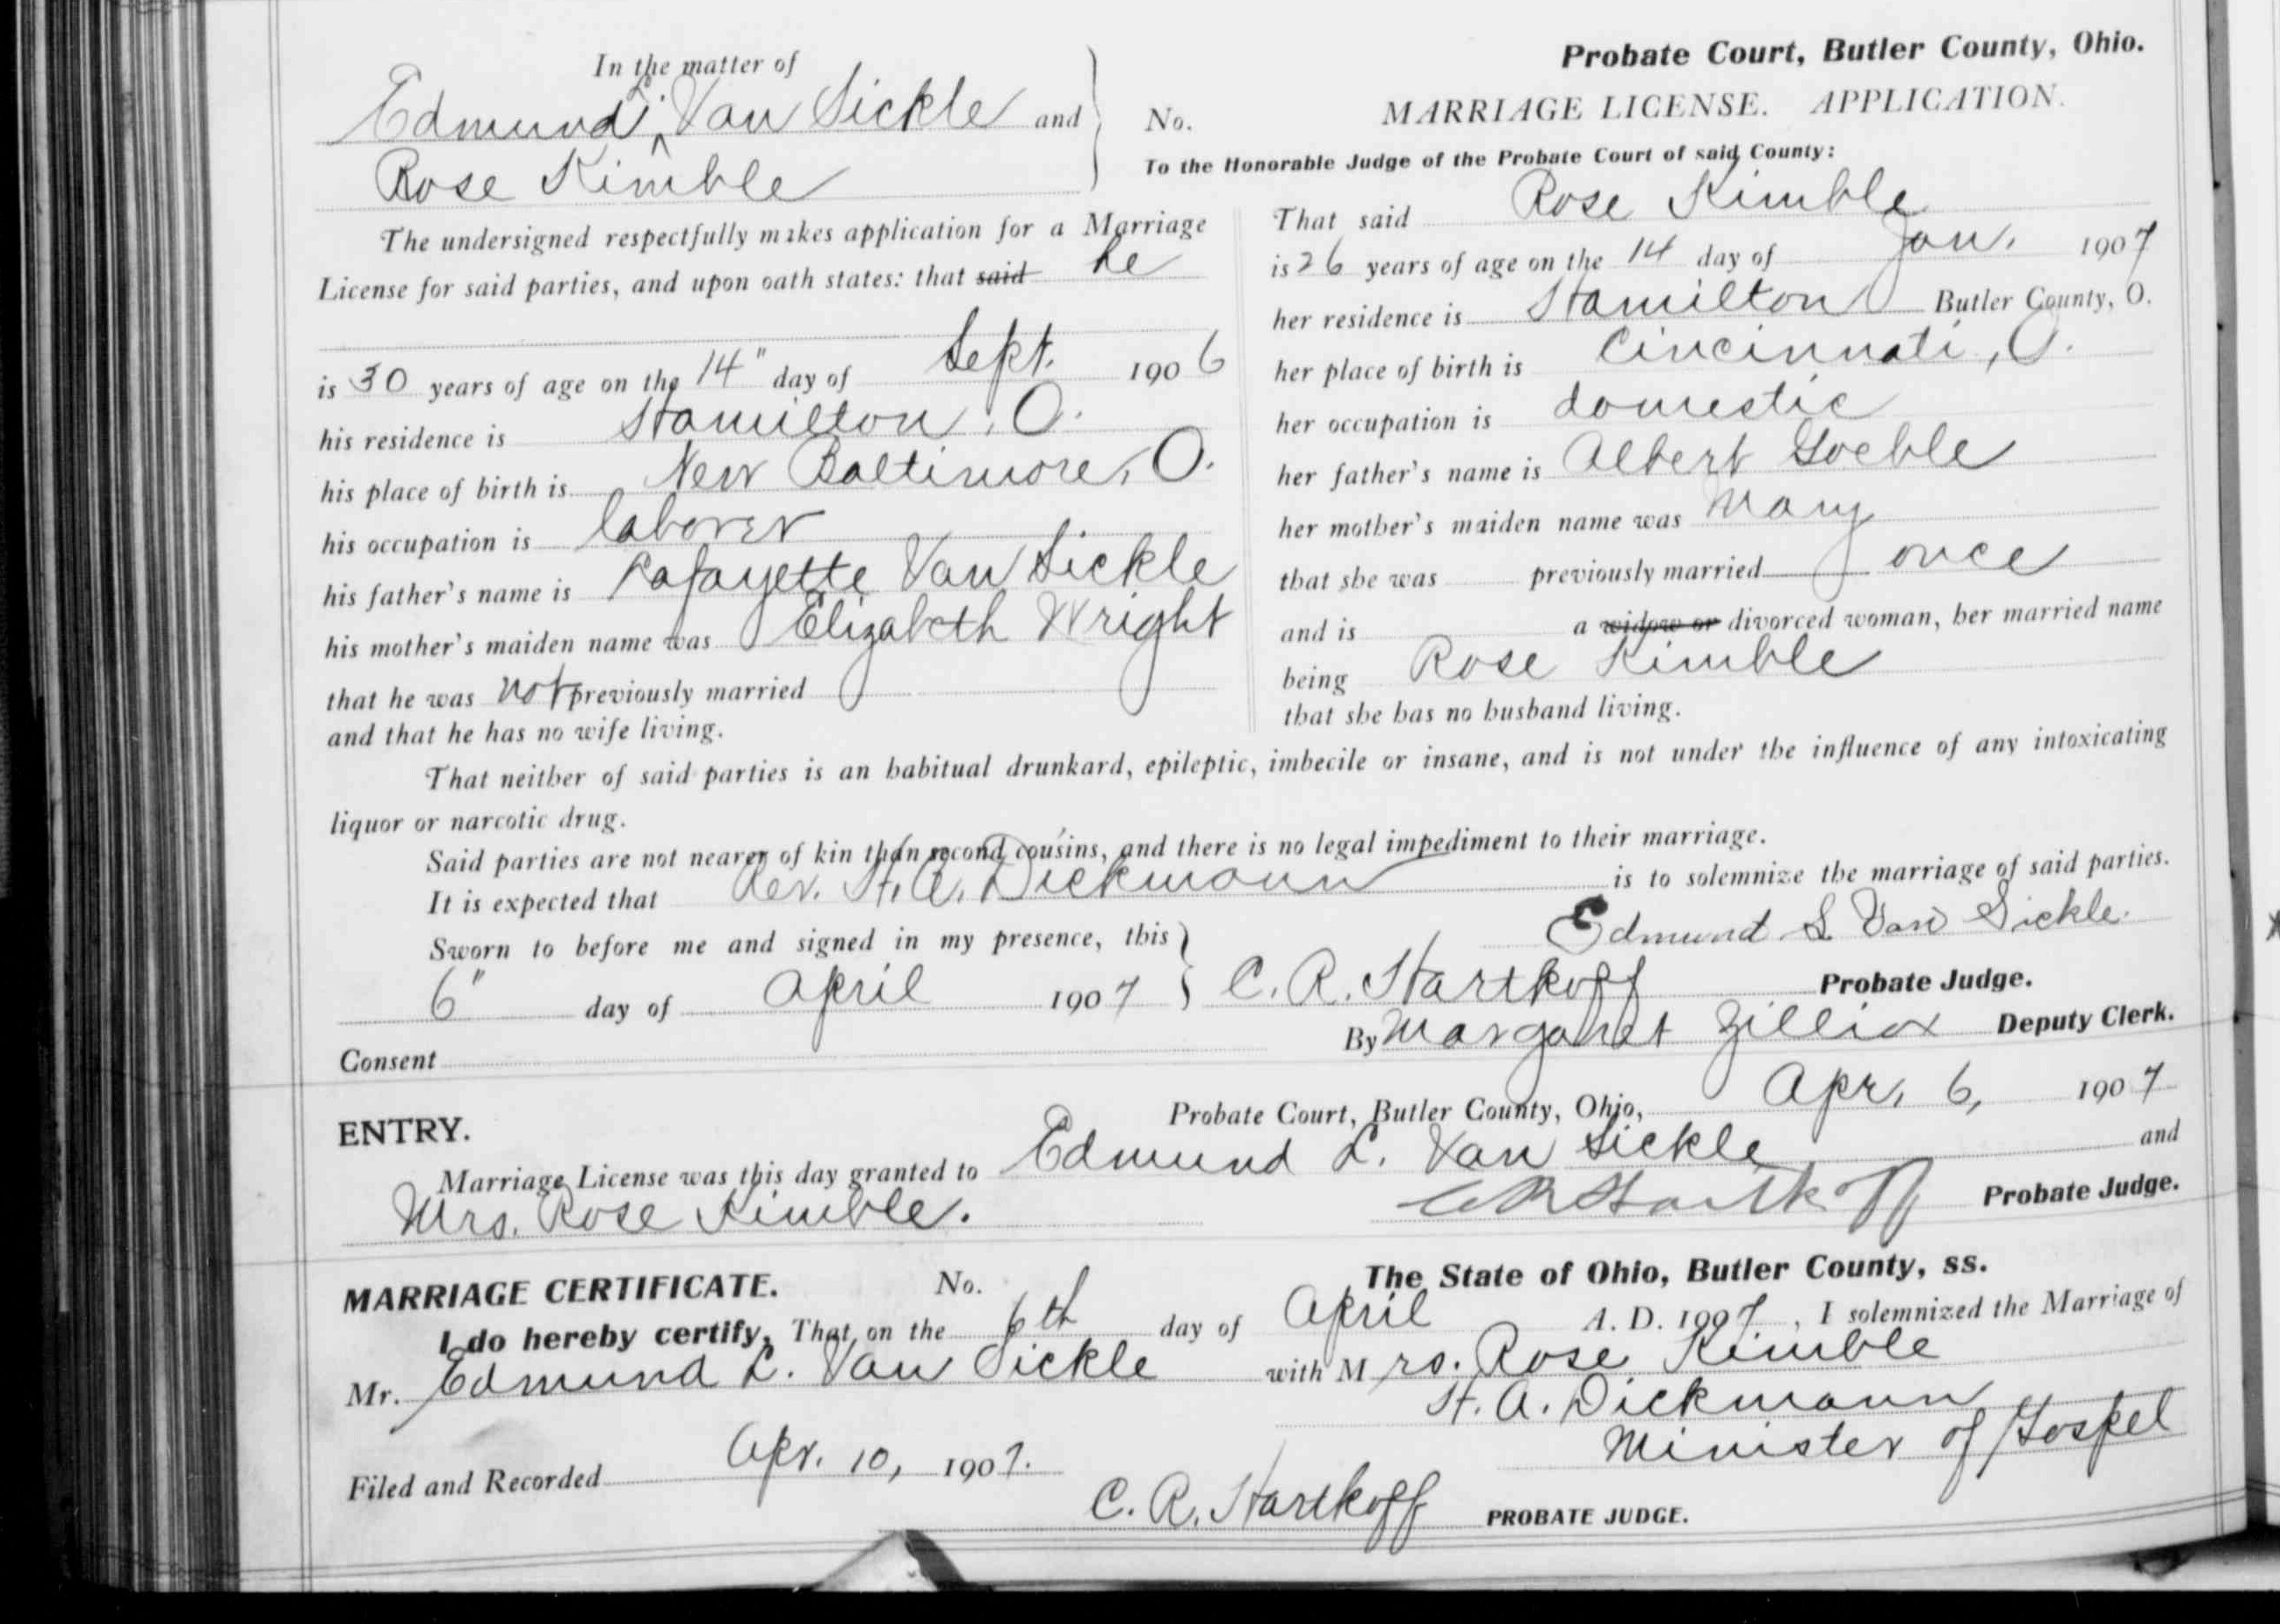 Probate Court, Butler County, Ohio.
MARRIAGE LICENSE. APPLICATION.
In the matter of
Edmund L. Van Sickle and
Rose Kimble
No.
To the Honorable Judge of the Probate Court of said County:
The undersigned respectfully makes application for a Marriage
License for said parties, and upon oath states: that said he
is 30 years of age on the 14" day of Sept. 1906
his residence is Hamilton, O.
his place of birth is New Baltimore, O.
his occupation is laborer
his father's name is Lafayette Van Sickle
his mother's maiden name was Elizabeth Wright
that he was not previously married
and that he has no wife living.
That said Rose Kimble
is 26 years of age on the 14 day of Jan. 1907
her residence is Hamilton Butler County, O.
her place of birth is Cincinnati, O.
her occupation is domestic
her father's name is Albert Goeble
her mother's maiden name was Mary
that she was previously married once
and is a widow or divorced woman, her married name
being Rose Kimble
that she has no husband living.
That neither of said parties is an habitual drunkard, epileptic, imbecile or insane, and is not under the influence of any intoxicating
liquor or narcotic drug.
Said parties are not nearer of kin than second cousins, and there is no legal impediment to their marriage.
It is expected that Rev. H. A. Dickmann is to solemnize the marriage of said parties.
Edmund L Van Sickle.
Sworn to before me and signed in my presence, this
6" day of April 1907 C. R. Hartkoff Probate Judge.
By Margaret Zilliox Deputy Clerk.
Consent
ENTRY.
Probate Court, Butler County, Ohio, Apr. 6, 1907
Marriage License was this day granted to Edmund L. Van Sickle and
Mrs. Rose Kimble.
C R Hartkoff Probate Judge.
MARRIAGE CERTIFICATE. No. The State of Ohio, Butler County, ss.
I do hereby certify, That on the 6th day of April A. D. 1907, I solemnized the Marriage of
Mr. Edmund L. Van Sickle with Mrs. Rose Kimble
H. A. Dickmann
Minister of Gospel
Filed and Recorded Apr. 10, 1907.
C. R. Hartkoff PROBATE JUDGE.